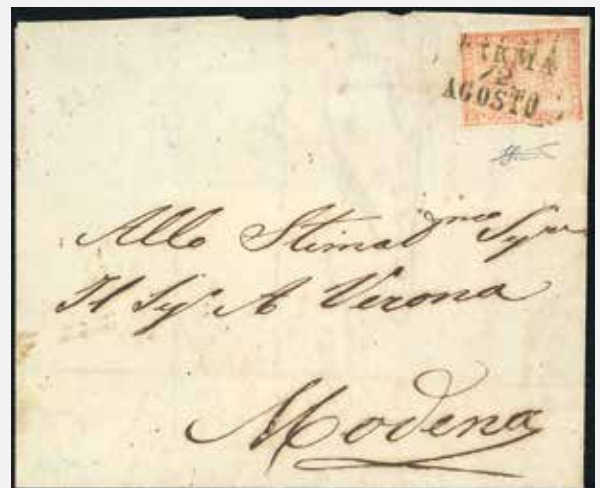 PARMA
12
AGOSTO
Allo Stimatmo Sigre
Il Sigr A Verona
Modena